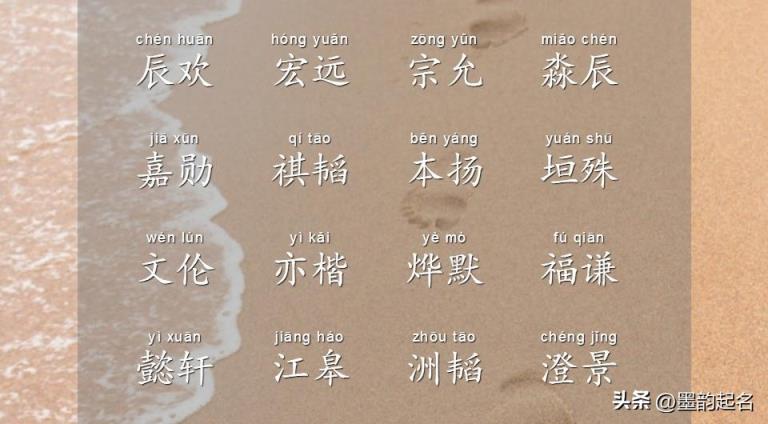 chén huān hóng yuǎn zōng yǔn miǎo chén
辰欢 宏远 宗允 淼辰
jiā xūn qí tāo běn yáng yuán shū
嘉勋 祺韬 本扬 垣殊
wén lún yì kǎi yè mò fú qiān
文伦 亦楷 烨默 福谦
yì xuān jiāng háo zhōu tāo chéng jǐng
懿轩 江皋 洲韬 澄景
头条 @墨韵起名